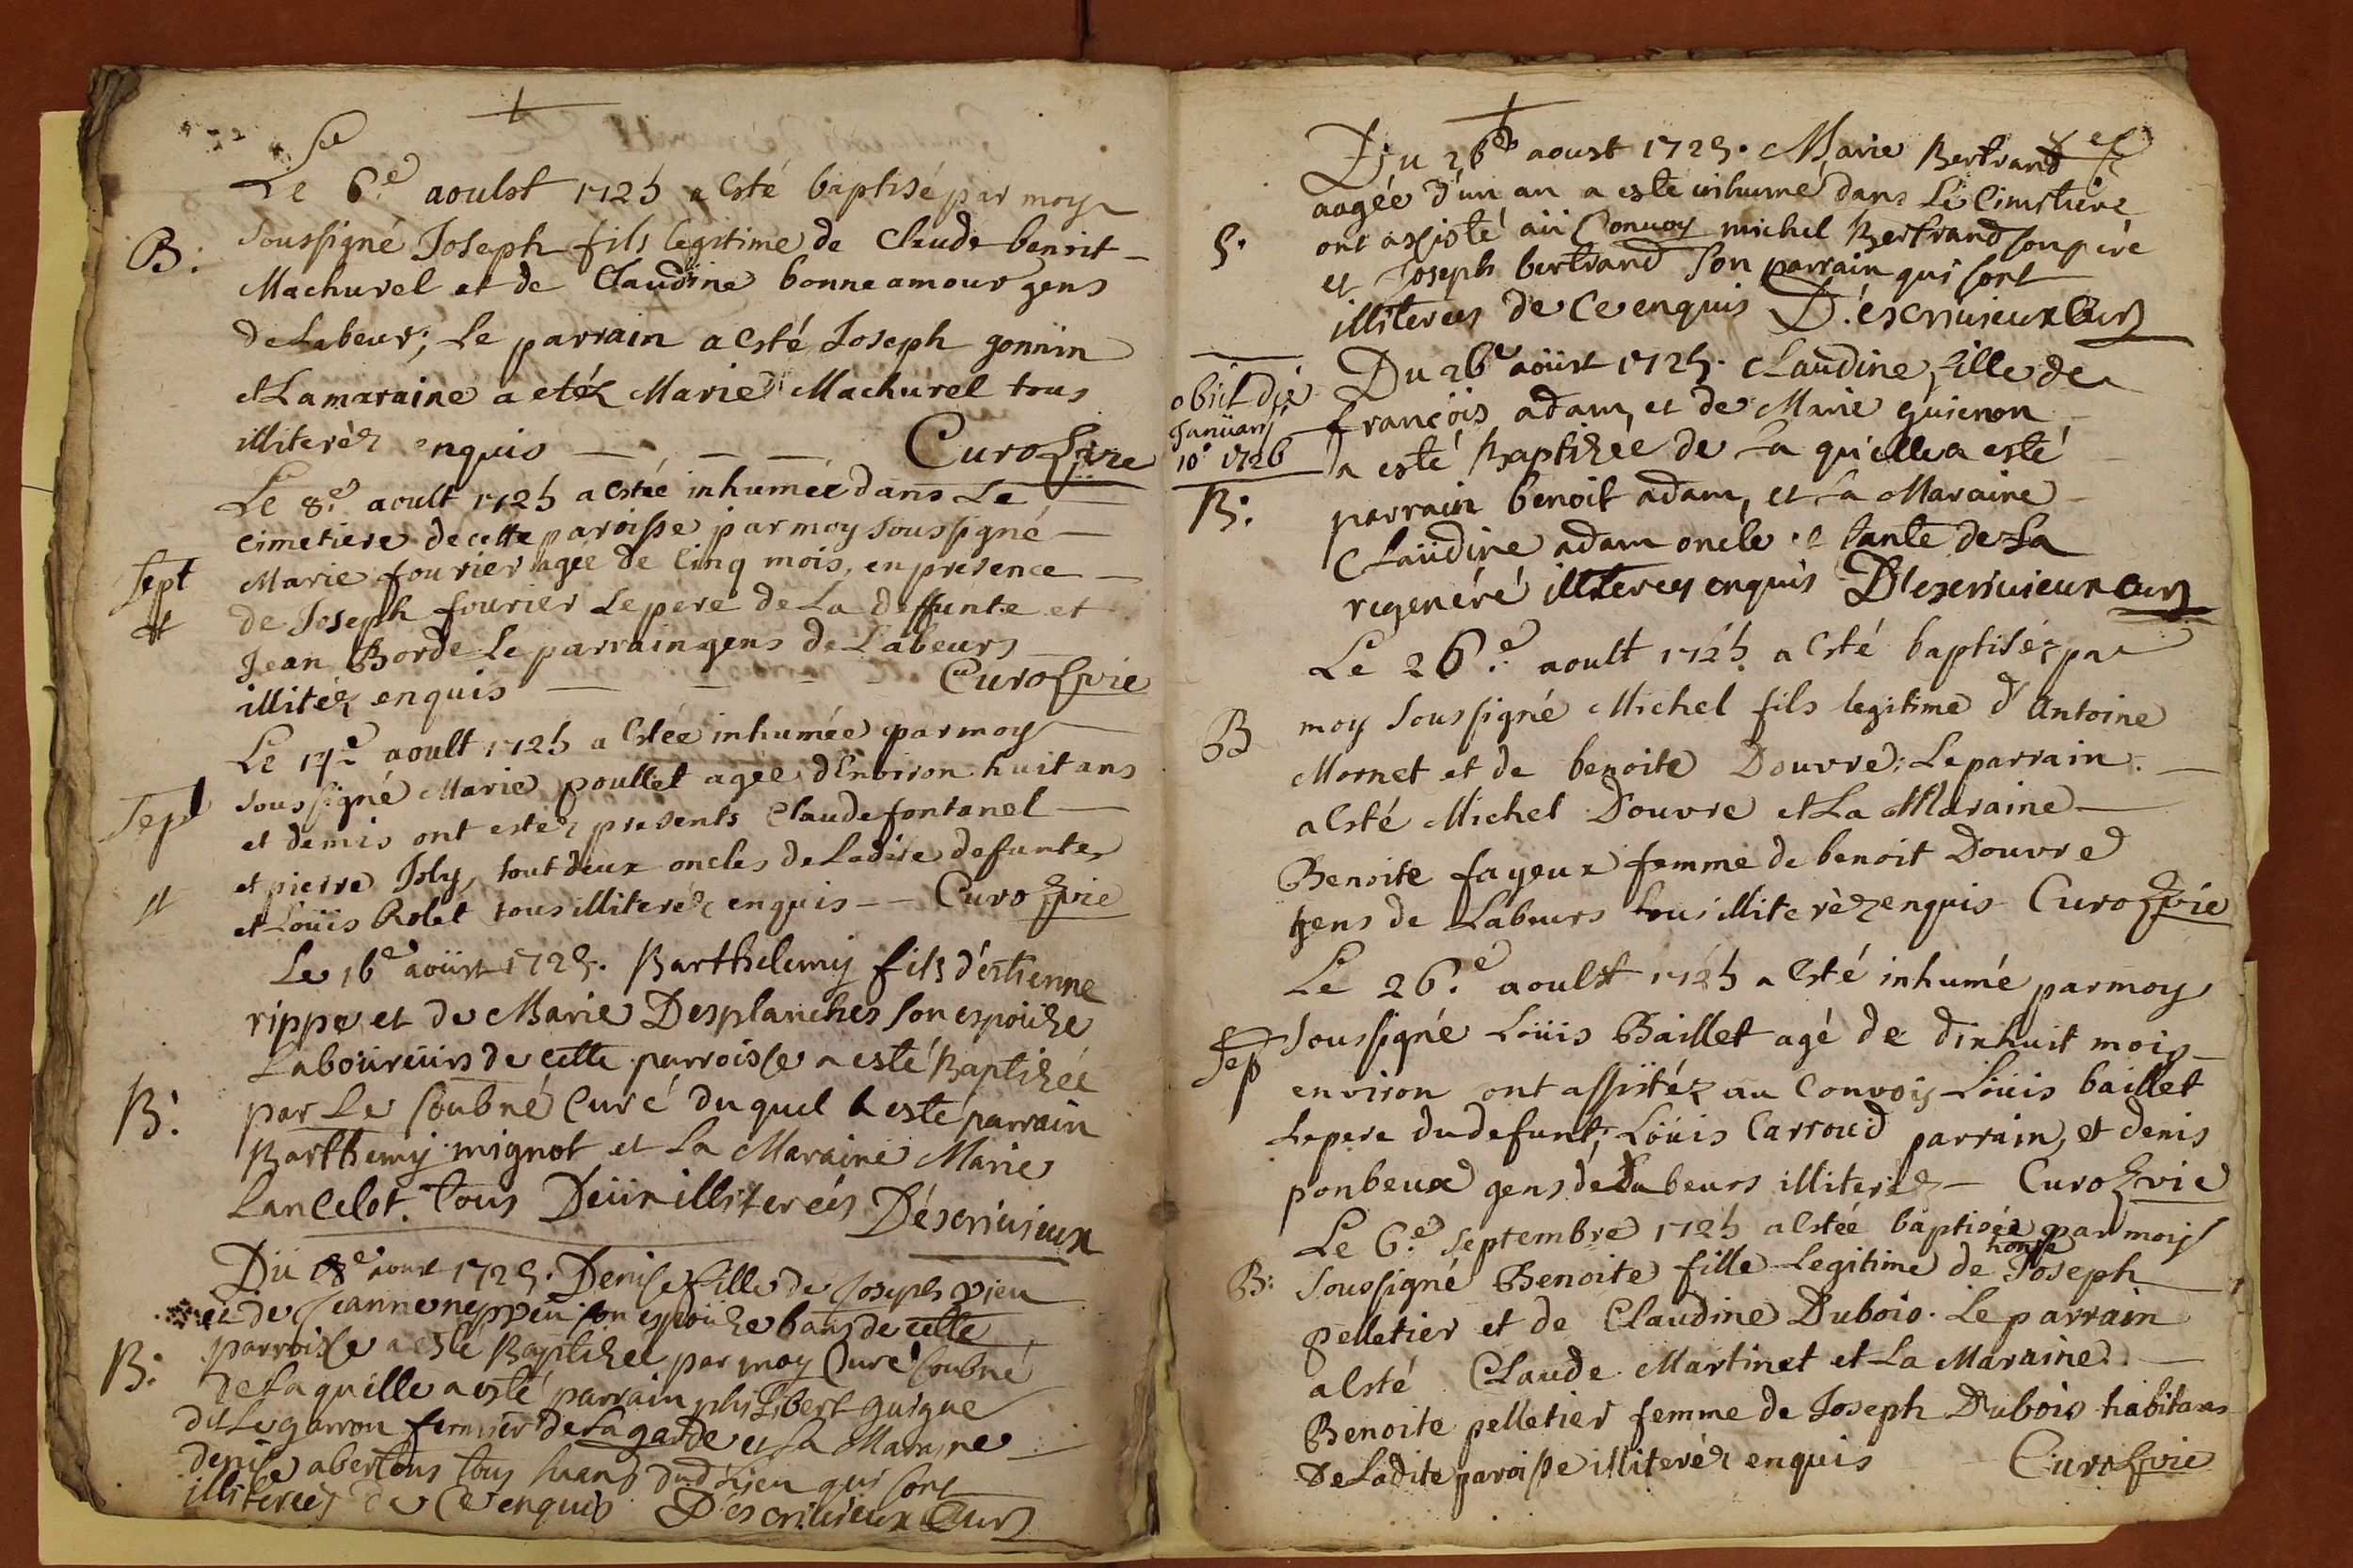 Le 6.e aoulst 1725 a esté baptisé par moy
B: soussigné Joseph fils legitime de Claude benoit
Machurel et de Claudine bonneamour gens
de Labeur; Le parrain a esté Joseph gonnin
et La maraine a etéz Marie Machurel tous
illiteréz enquis Curo
Le 8.e aoult 1725 a estée inhumée dans Le
cimetiere de cette paroisse par moy soussigné
Sept Marie fourier agée de Cinq mois, en presence
de Joseph fourier Le pere de La deffunte et
Jean Borde Le parrain gens de Labeurs
illitéz enquis Curo
Le 17.e aoult 1725 a estée inhumée par moy
Sept soussigné Marie poullet agée d'Environ huit ans
et demis ont estéz presents Claude fontanel
et pierre Joly, tout deux oncles de Ladite defuntes
et Loüis Rolet tous illiteréz enquis Curo
Le 16e aoüst 1725. Barthelemy fils d'estienne
rippe et de Marie Desplanches son espouze
Laboureurs de cette parroisse a esté Baptizée
B: par Le soubné Curé duquel a esté parrain
Barthemy mignot et La Maraine Marie
Lancelot. Tous Deüx illiterées Déscrivieux
Du 18e aoust 1725. Denise fille de Joseph vieu
et de Jeanne neppveu son espouze de cette
B: parroisse a esté Baptizée par moy Curé soubné
de Laquelle a esté parrain philibert guigue
dit Le garron fermier de La garde et La Maraine
denise tous dud Lieu qui sont
illiterées de Ce enquis D'escrivieux Curé
Du 26e aoust 1725. Marie Bertrand
aagée d'un an a este inhumé dans Le Cimetiere
S. ont assisté aü Convoy michel Bertrand son pere
et Joseph bertrand son parrain qui sont
illiterees de Ce enquis D'éscrivieux Curé
Du 26e aoüst 1725. Claudine, fille de
obiit die
Januarÿ
10a 1726
françois adam, et de Marie guienon
a esté Baptizée de La qu'elle a esté
B: parrain benoit adam, et La Maraine
Claüdine adam oncle et tante de La
regenéré illiterees enquis D'escrivieux Curé
Le 26.e aoult 1725 a esté baptiséz par
B moy soussigné Michel fils legitime d'Antoine
Mornet et de benoite Douvre: Le parrain
a esté Michel Douvre et La Maraine
Benoite fayeux femme de benoit Douvre
gens de Labeurs tous illiteréz enquis Curo
Le 26.e aoulst 1725 a esté inhumé par moy
Sep soussigné Loüis Baillet agé de dixhuit mois
environ ont assistéz au Convoy Loüis baillet
Le pere du defunt, Loüis Carroud parrain, et denis
ponbeux gens de Labeurs illiteréz Curo
Le 6.e Septembre 1725 a estée baptisée par moy
B: soussigné Benoite fille Legitime de honste Joseph
pelletier et de Claudine Dubois. Le parrain
a esté Claude Martinet et La Maraine
Benoite pelletier femme de Joseph Dubois habitans
de Ladite paroisse illiteréz enquis Curo